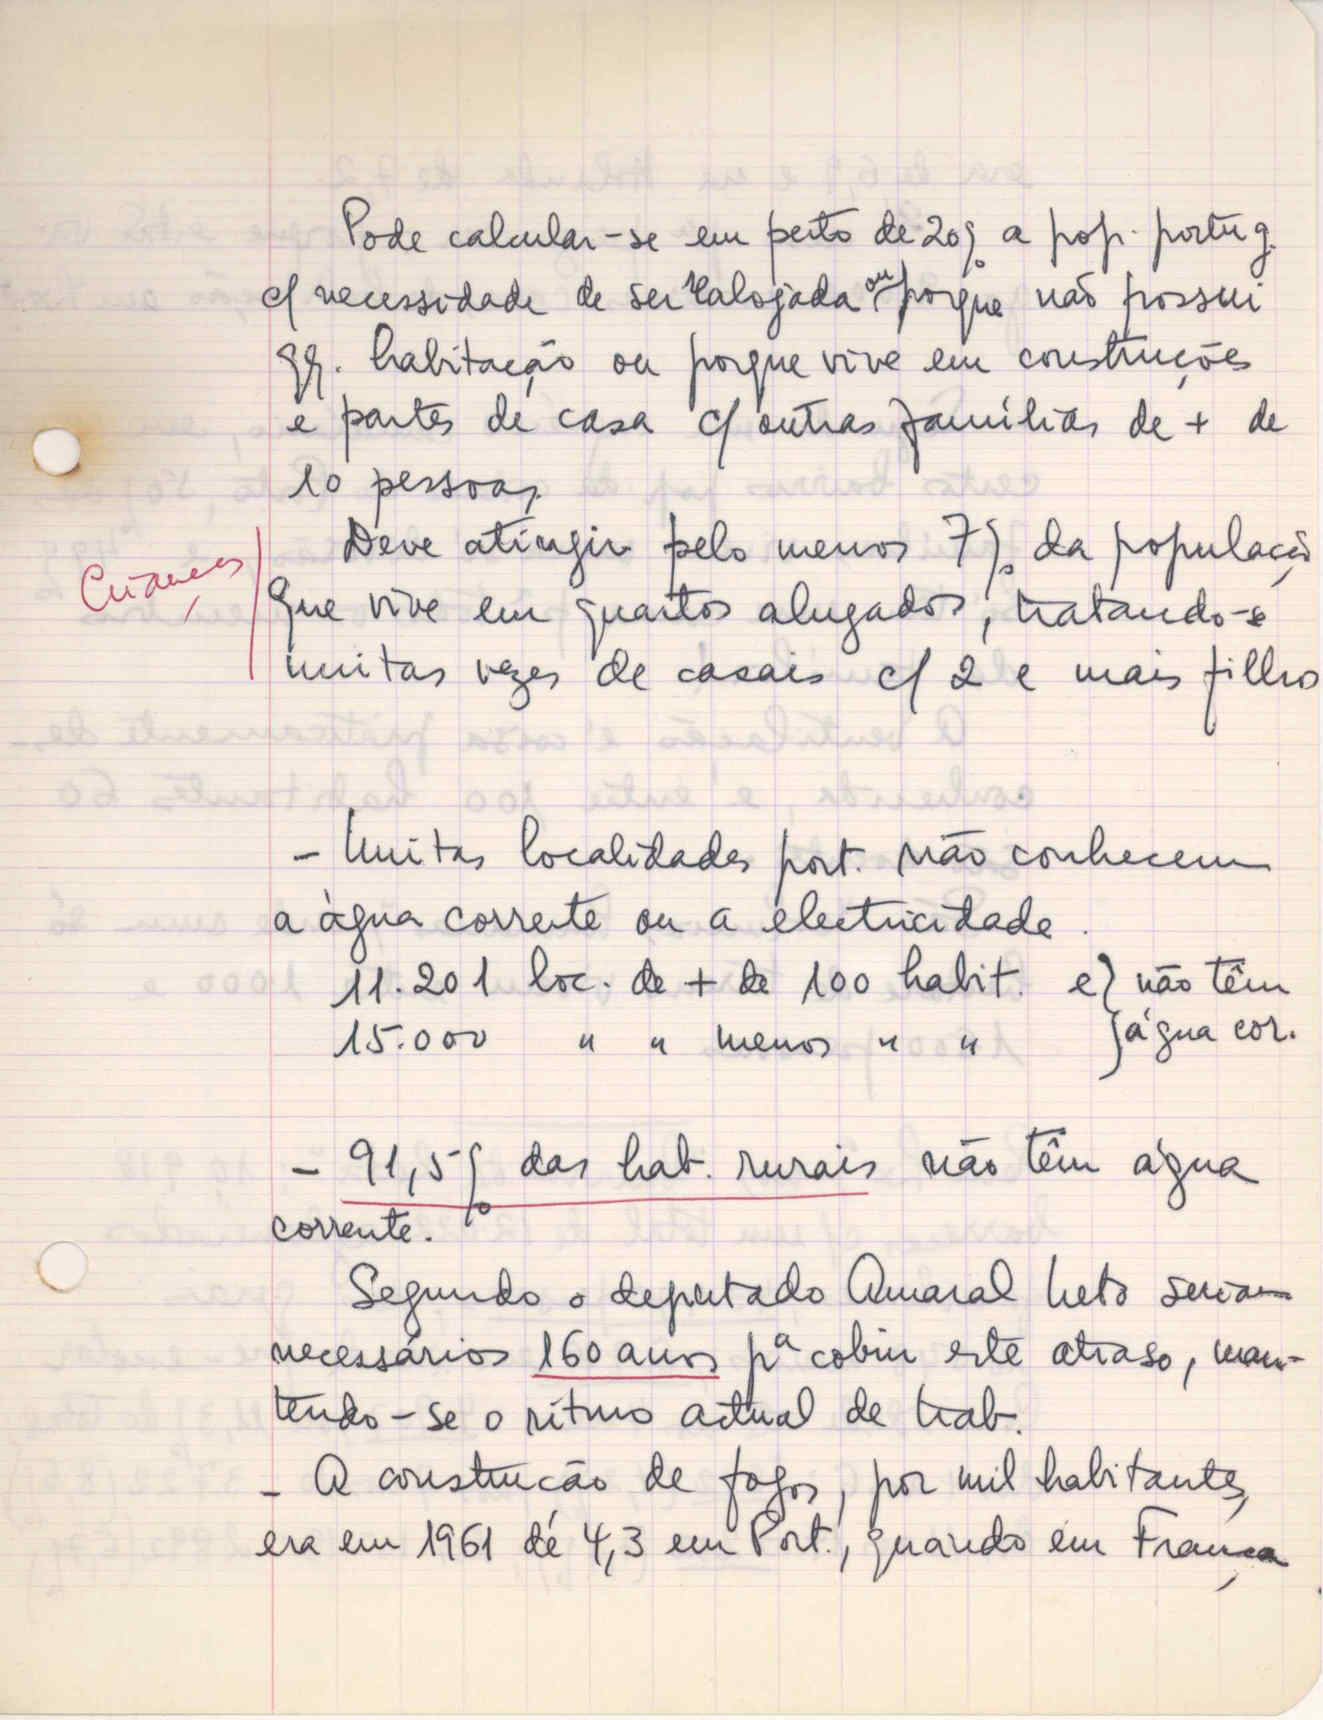 Pode calcular-se em perto de 20% a pop. portug.
c/ necessidade de ser realojada ou porque não possui
qq. habitação ou porque vive em construções
e partes de casa c/ outras famílias de + de
10 pessoas.
Crianças
Deve atingir pelo menos 7% da população
que vive em quartos alugados, tratando-se
muitas vezes de casais c/ 2 e mais filhos
- Muitas localidades port. não conhecem
a água corrente ou a electricidade.
11.201 loc. de + de 100 habit. e } não têm
15.000 " " menos " " } água cor.
- 91,5% das hab. rurais não têm água
corrente.
Segundo o deputado Amaral Neto seriam
necessários 160 anos pª cobrir este atraso, man-
tendo-se o ritmo actual de trab.
- A construção de fogos, por mil habitantes,
era em 1961 de 4,3 em Port., quando em França